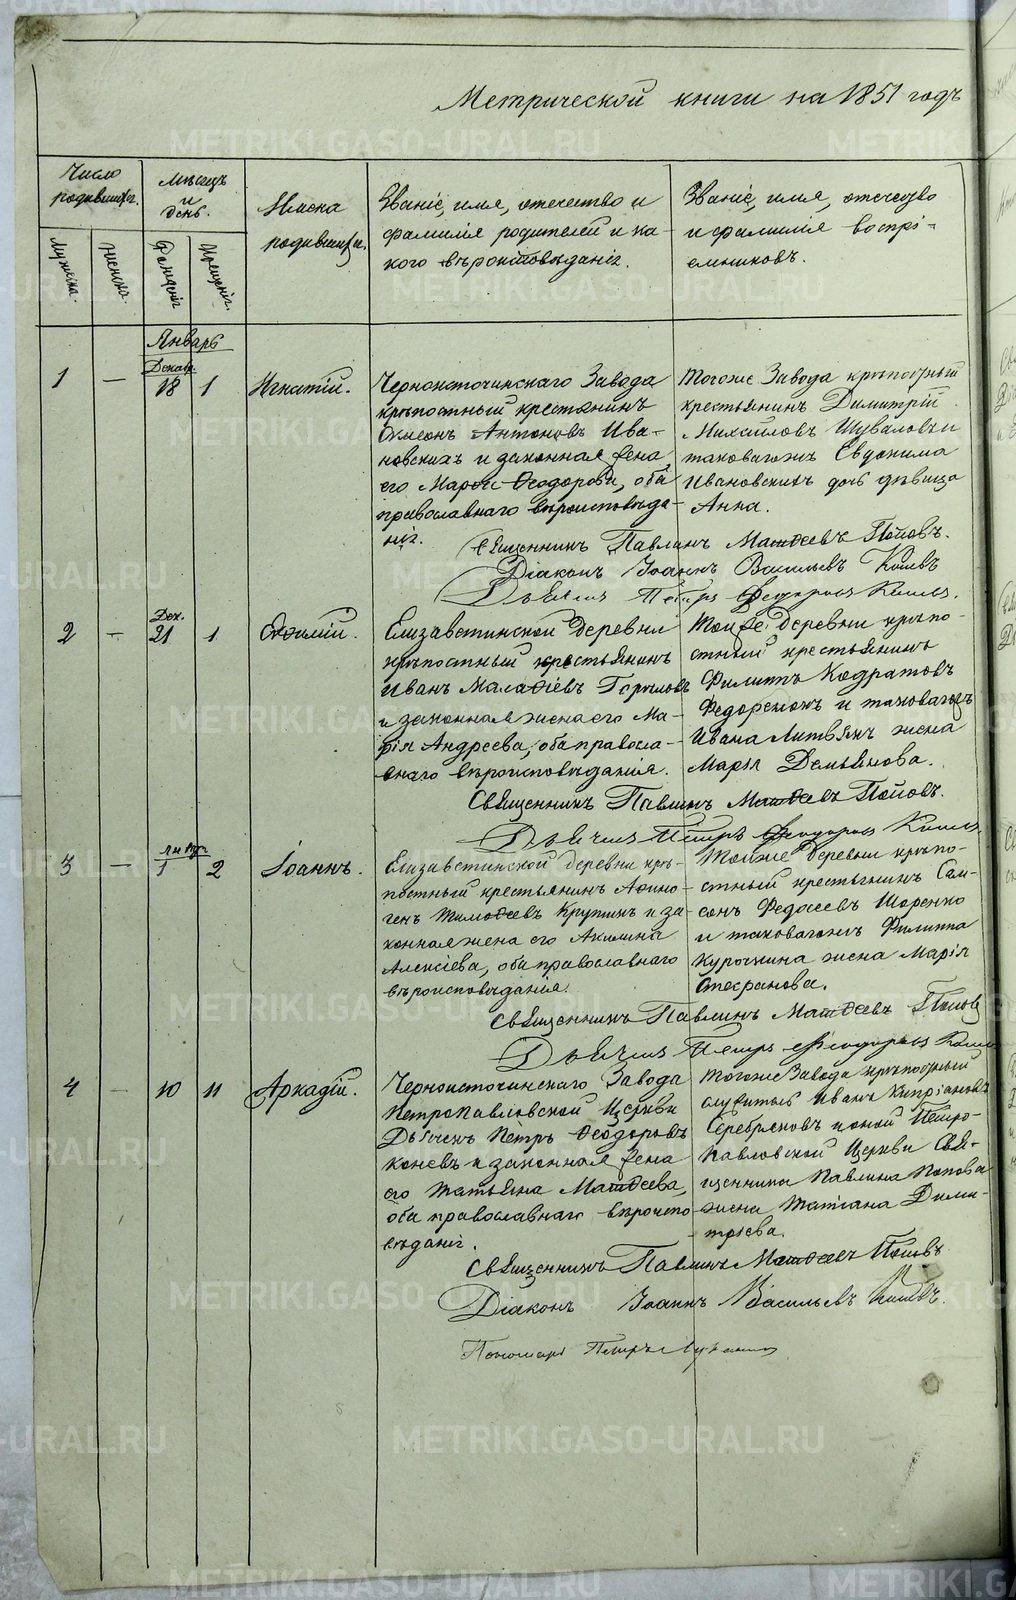 Метрической книги на 1851 годъ
Число родившихся.
Мѣсяцъ и день.
Имена родившихся.
Званіе, имя, отечество и
фамилія родителей и ка-
кого вѣроисповѣданія.
Званіе, имя, отечество
и фамилія воспрі-
емниковъ.
Мужеска.
Женска.
Рожденія
Крещенія.
Январь
1 — Декабр. 18 1 Игнатій.
Черноисточинскаго Завода
крѣпостный крестьянинъ
Симеонъ Антоновъ Ива-
новскихъ и законная жена
его Марѳа Ѳеодорова, оба
православнаго вѣроисповѣда-
нія.
Тогоже Завода крѣпостный
крестьянинъ Димитрій
Михайловъ Шуваловъ и
таковагожъ Евдокима
Ивановскихъ дочь дѣвица
Анна.
Священникъ Павлинъ Матѳеевъ Поповъ.
Діаконъ Іоаннъ Васильевъ
Дьячекъ Петръ Федоровъ
2 — Дек. 21 1
Елизаветинской деревни
крѣпостный крестьянинъ
Иванъ
и законная жена его Ма-
рія Андреева, оба правосла-
внаго вѣроисповѣданія.
Тойже деревни крѣпо-
стный крестьянинъ
Филиппъ Кодратовъ
и таковагожъ
Ивана Литвякъ жена
Марія Демьянова.
Священникъ Павлинъ Матѳеевъ Поповъ.
Дьячекъ Петръ Ѳеодоровъ
3 — Январ. 1 2 Іоаннъ.
Елизаветинской деревни крѣ-
постный крестьянинъ Аѳино-
генъ Тимоѳеевъ Крупинъ и за-
конная жена его Акилина
Алексіева, оба православнаго
вѣроисповѣданія.
Тойже деревни крѣпо-
стный крестьянинъ Сам-
сонъ Федосеевъ Шоренко
и таковагожъ Филиппа
Курочкина жена Марія
Стефанова.
Священникъ Павлинъ Матѳеевъ Поповъ
Дьячекъ Петръ Ѳеодоровъ
4 — 10 11 Аркадій.
Черноисточинскаго Завода
Петропавловской Церкви
Дьячекъ Петръ Ѳеодоровъ
Коневъ и законная жена
его Татьяна Матѳеева,
оба православнаго вѣроиспо-
вѣданія.
Тогоже Завода крѣпостный
служитель Иванъ Кипріановъ
Серебряковъ и оной Петро-
павловской Церкви Свя-
щенника Павлина Попова
жена Татіана Дими-
тріева.
Священникъ Павлинъ Матѳеевъ Поповъ
Діаконъ Іоаннъ Васильевъ
Пономарь Петръ
METRIKI.GASO-URAL.RU